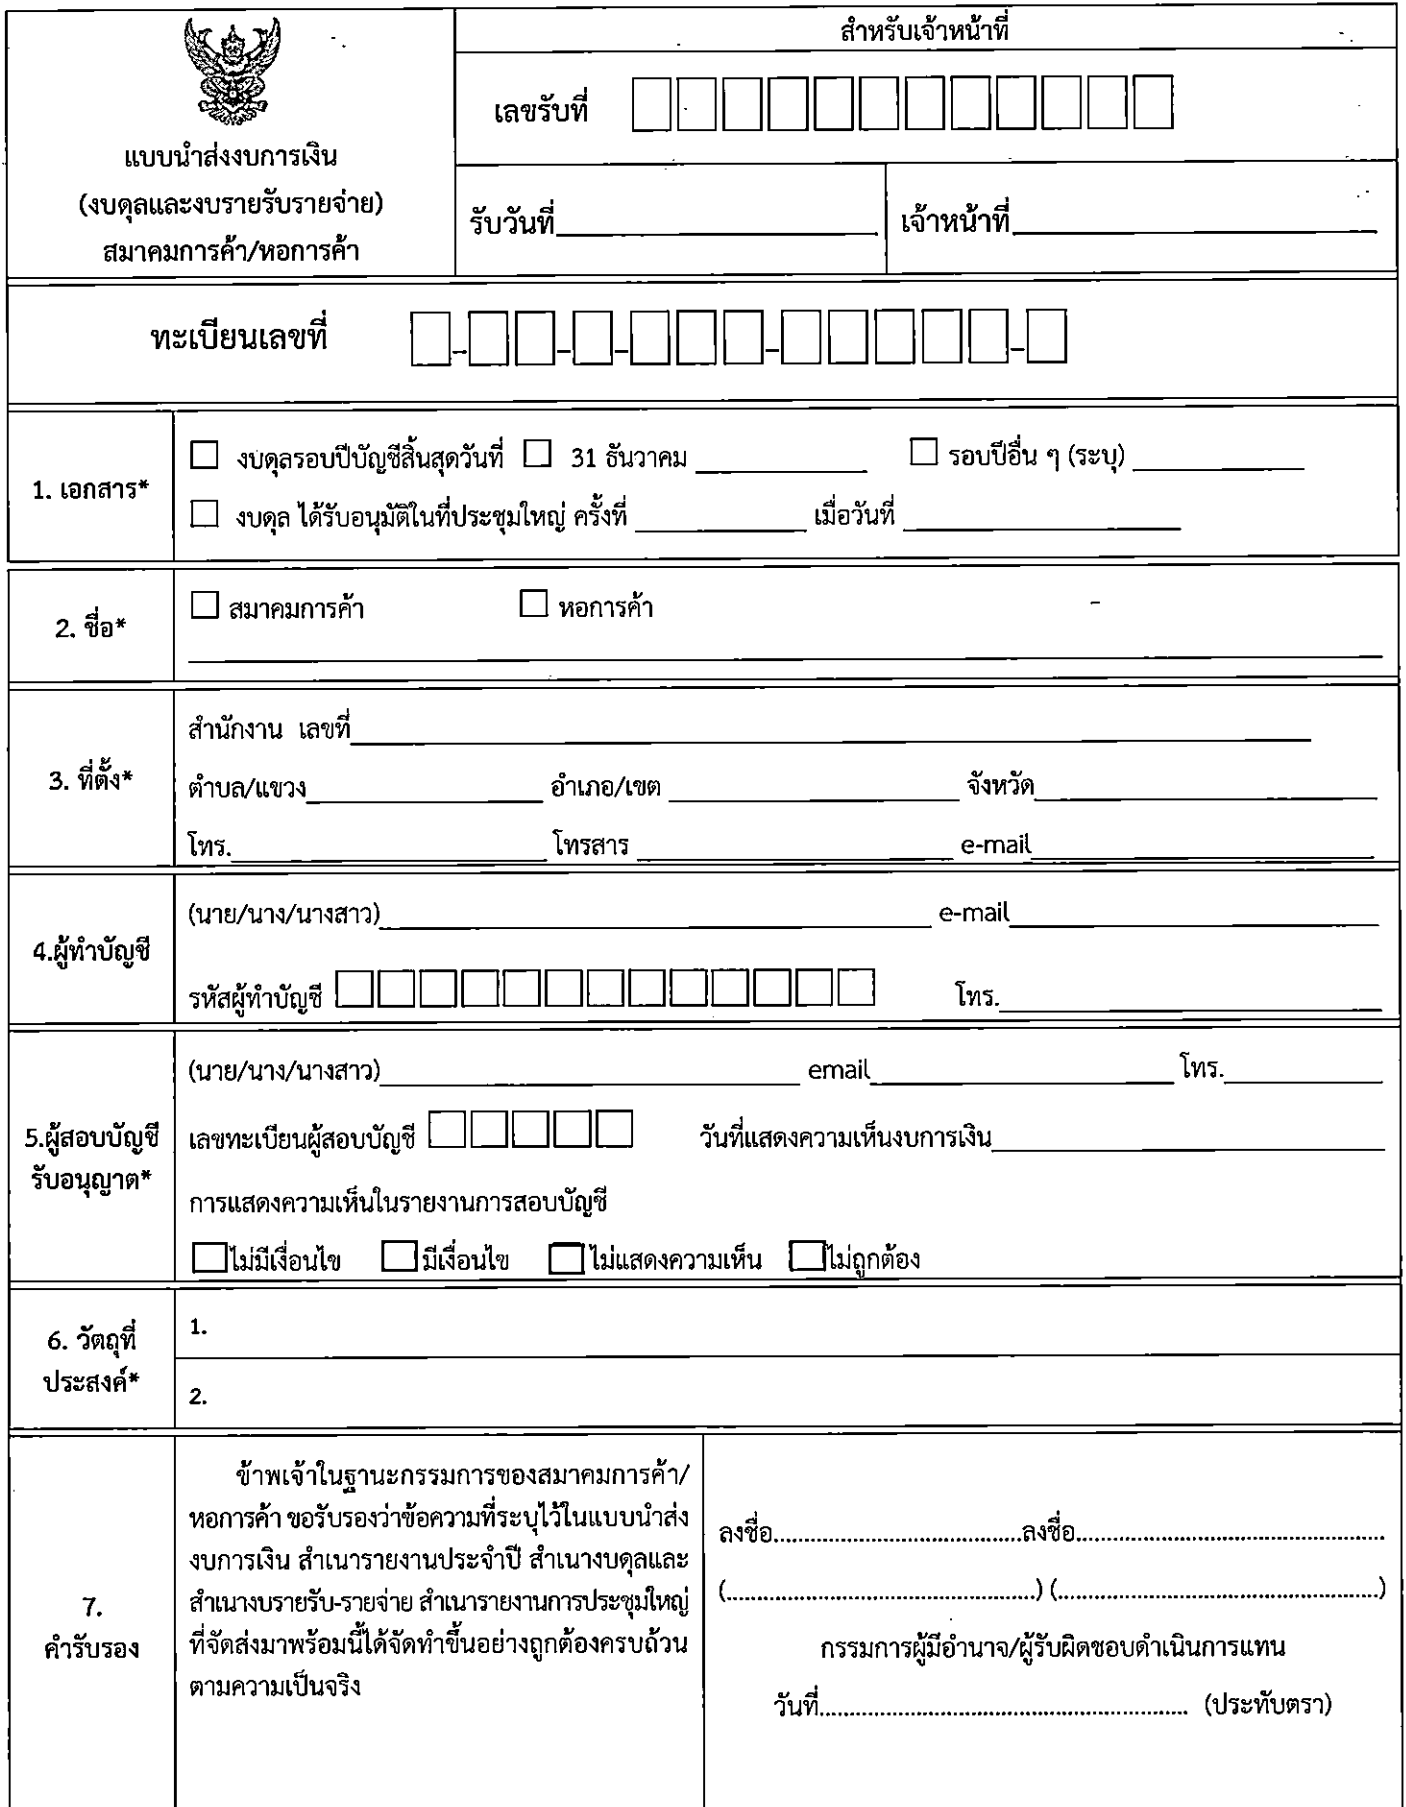 สำหรับเจ้าหน้าที่
เลขรับที่
แบบนำส่งงบการเงิน
(งบดุลและงบรายรับรายจ่าย)
สมาคมการค้า/หอการค้า
รับวันที่ เจ้าหน้าที่
ทะเบียนเลขที่ - - - - -
1. เอกสาร*
งบดุลรอบปีบัญชีสิ้นสุดวันที่ 31 ธันวาคม รอบปีอื่น ๆ (ระบุ)
งบดุล ได้รับอนุมัติในที่ประชุมใหญ่ ครั้งที่ เมื่อวันที่
2. ชื่อ*
สมาคมการค้า หอการค้า
3. ที่ตั้ง*
สำนักงาน เลขที่
ตำบล/แขวง อำเภอ/เขต จังหวัด
โทร. โทรสาร e-mail
4.ผู้ทำบัญชี
(นาย/นาง/นางสาว) e-mail
รหัสผู้ทำบัญชี โทร.
5.ผู้สอบบัญชี
รับอนุญาต*
(นาย/นาง/นางสาว) email โทร.
เลขทะเบียนผู้สอบบัญชี วันที่แสดงความเห็นงบการเงิน
การแสดงความเห็นในรายงานการสอบบัญชี
ไม่มีเงื่อนไข มีเงื่อนไข ไม่แสดงความเห็น ไม่ถูกต้อง
6. วัตถุที่
ประสงค์*
1.
2.
7.
คำรับรอง
ข้าพเจ้าในฐานะกรรมการของสมาคมการค้า/
หอการค้า ขอรับรองว่าข้อความที่ระบุไว้ในแบบนำส่ง
งบการเงิน สำเนารายงานประจำปี สำเนางบดุลและ
สำเนางบรายรับ-รายจ่าย สำเนารายงานการประชุมใหญ่
ที่จัดส่งมาพร้อมนี้ได้จัดทำขึ้นอย่างถูกต้องครบถ้วน
ตามความเป็นจริง
ลงชื่อ........................................ลงชื่อ..................................................
(..................................................) (....................................................)
กรรมการผู้มีอำนาจ/ผู้รับผิดชอบดำเนินการแทน
วันที่............................................................ (ประทับตรา)